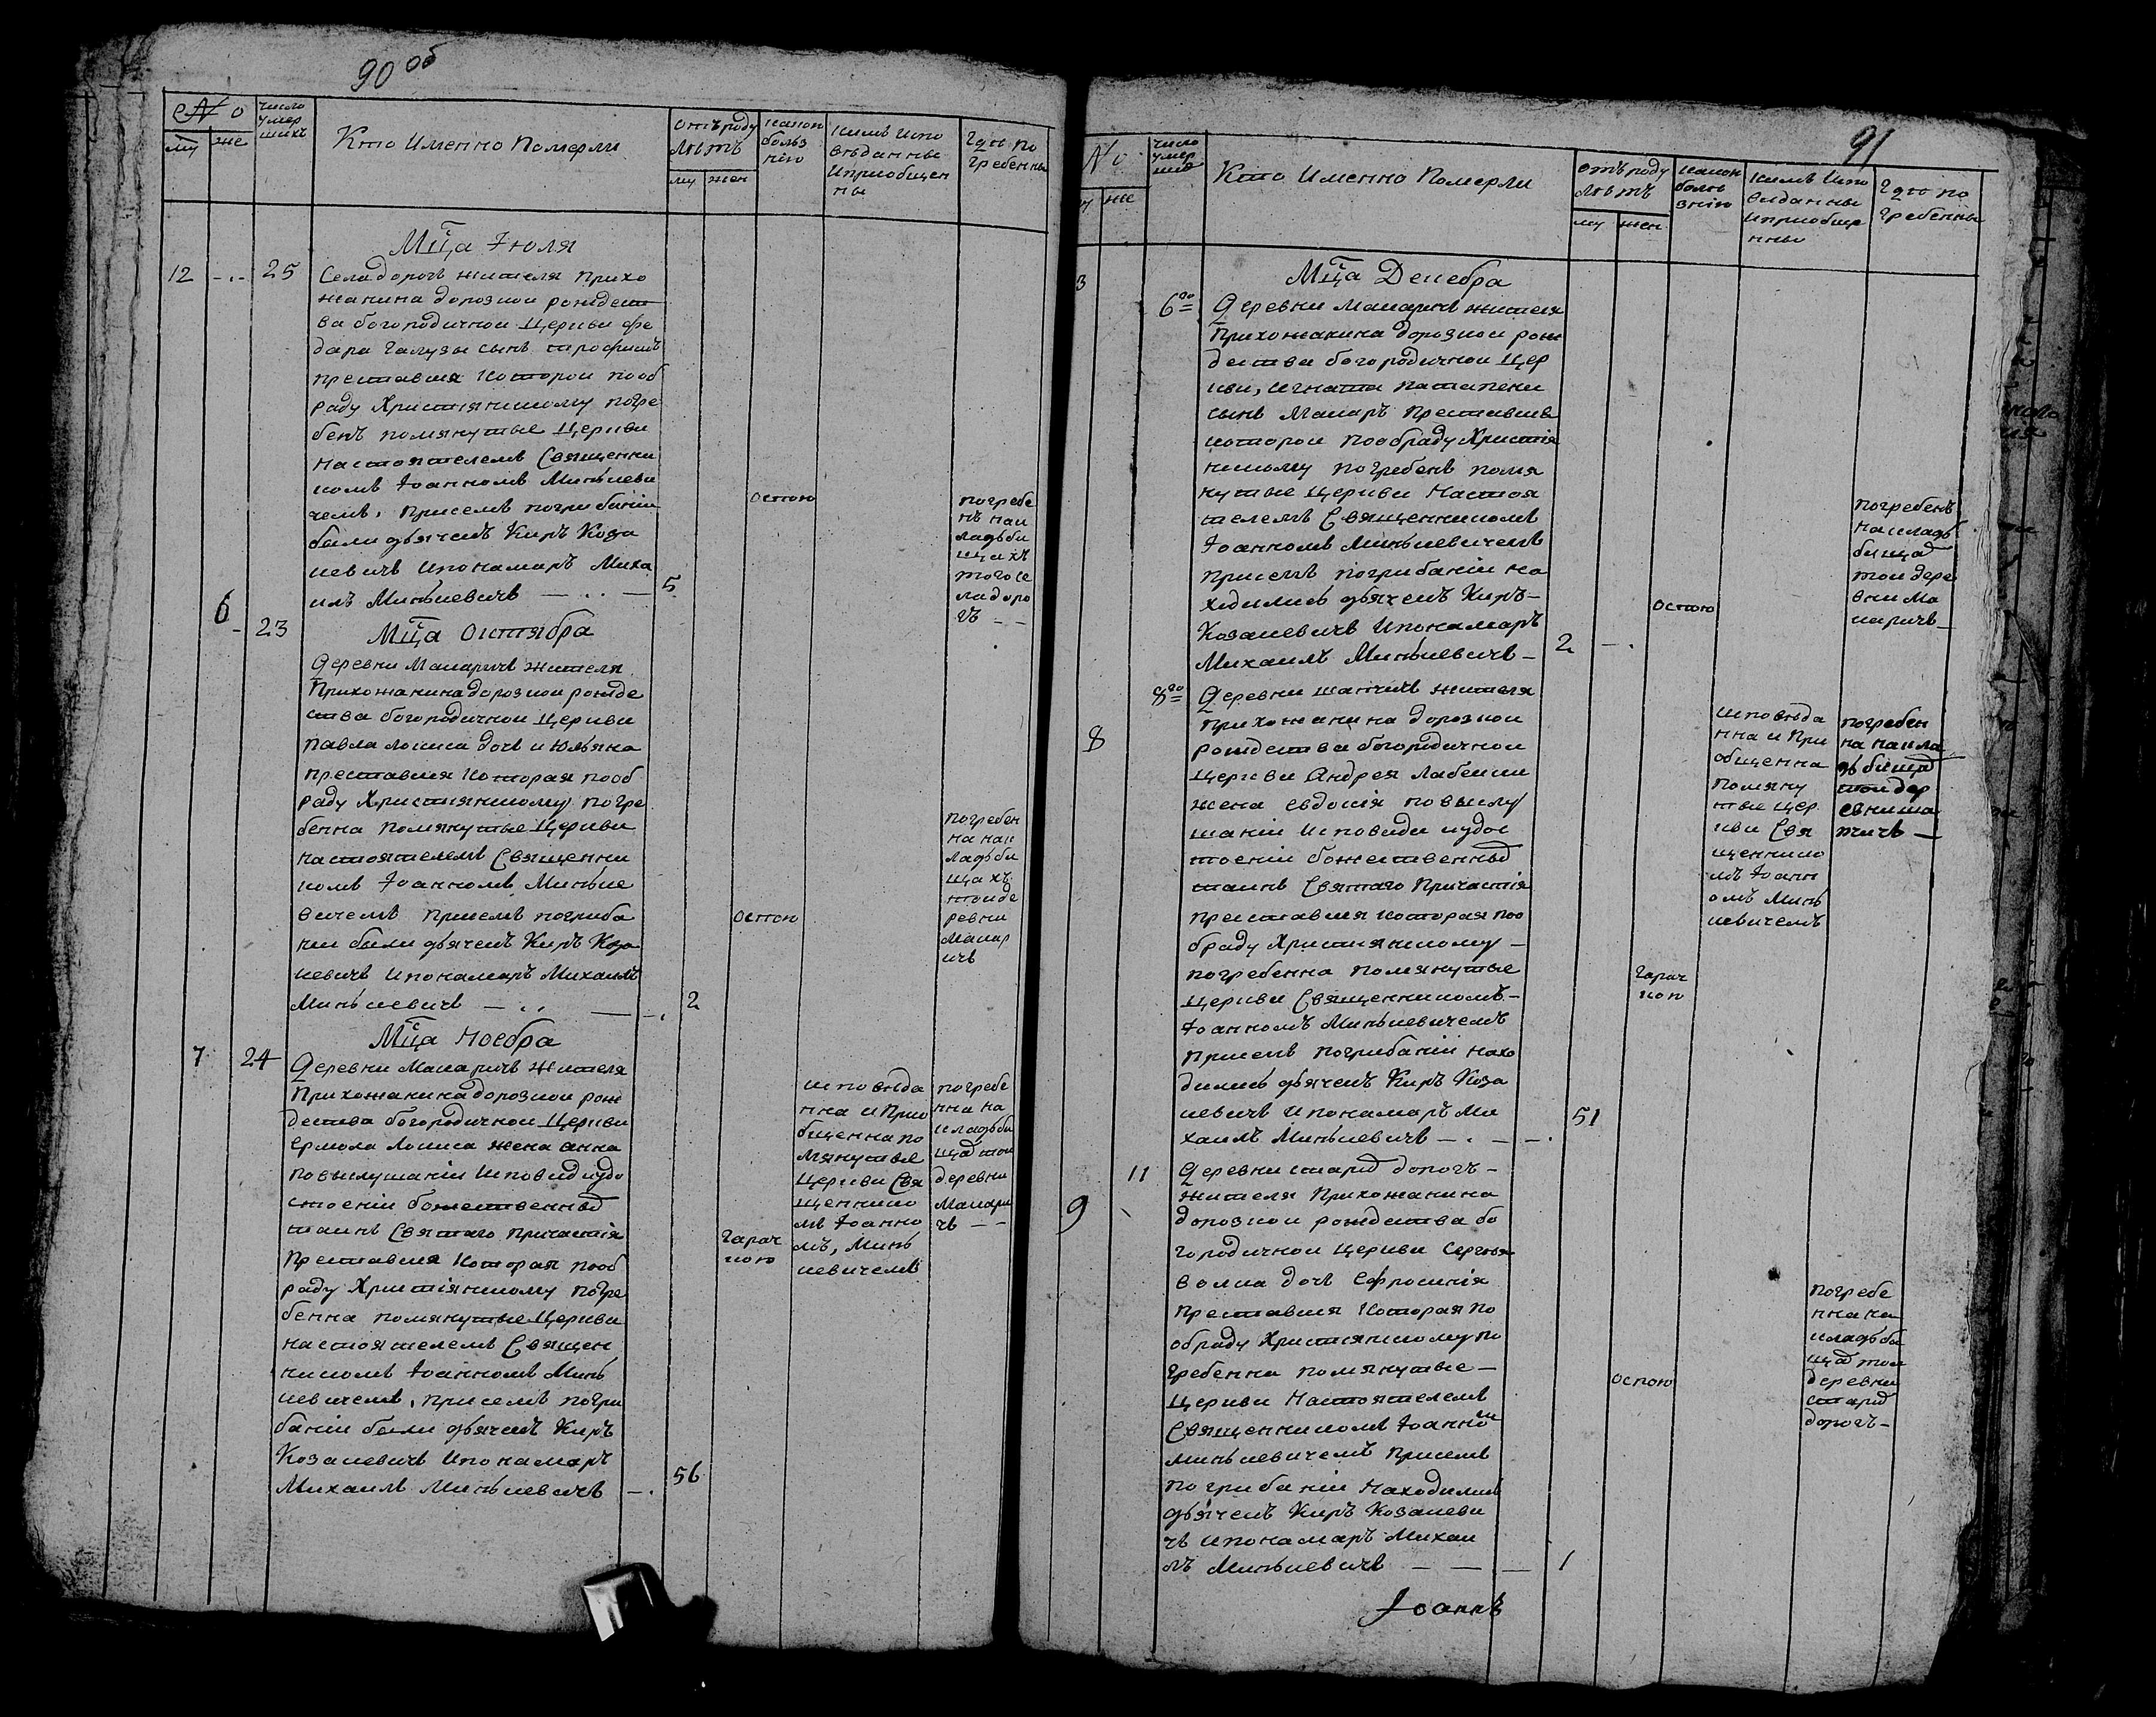 90 об
№ о
му же
число
умер
шихъ
Кто Именно Померли
отъ роду
лѣтъ
му жен
какою
болѣз
нію
кимъ испо
вѣданны
и приобщен
ны
Гдѣ по
гребенны
Мца Іюля
12 - .. 25
Села дорогъ жителя прихо
жанина дорозкои рождест
ва богородичнои Церкви фе
дара Галузы сынъ трофимъ
преставися которои пооб
раду Християнскому погре
бенъ помянутые Церкви
настоятелемъ Священни
комъ Іоанномъ Минькеви
чемъ, присемъ погрибаніи
были дьячекъ Киръ Коза
кевичъ ипонамаръ Миха
илъ Минькевичъ — . . —
5
оспою
погребе
нъ нак
ладьби
щахъ
того се
ла доро
гъ - -
6 - 23
Мца Октября
Деревни Макаричъ жителя
Прихожанина дорозкои рожде
ства богородичнои Церкви
павла лописа дочъ июльяна
преставися которая пооб
раду Християнскому погре
бенна помянутые Церкви
настоятелемъ Священни
комъ Іоанномъ Минькие
вичемъ присемъ погриба
нии были дьячекъ Киръ Коза
кевичъ ипонамаръ Михаилъ
Минькевичъ — . . — - .
2
оспою
погребен
на нак
ладьби
щахъ
тоиде
ревни
Макар
ичъ
Мца Ноебра
7 24
Деревни Макаричъ жителя
Прихожанина дорозкои рож
дества богородичнои Церкви
Ермола лописа жена анна
повыслушаніи исповиди удо
стоеніи божественных
таинъ Святаго причастія
Преставися которая пооб
раду Християнскому погре
бенна помянутые Церкви
настоятелемъ Священ
никомъ Іоанномъ Минь
кевичемъ, присемъ погри
баніи были дьячекъ Киръ
Козакевичъ ипонамаръ
Михаилъ Минькевичъ — .
56
гарач
кою
исповѣда
нна и Прио
бщенна по
мянутые
Церкви Свя
щеннико
мъ Іоанно
мъ, Минь
кевичемъ
погребе
нна на
кладьби
щах тои
деревни
Макари
чъ - -
91
№ о
у же
число
умер
ших
Кто Именно Померли
отъ роду
лѣтъ
му жен
какою
болѣ
знію
кимъ испо
виданны
и приобще
нны
Гдѣ по
гребенны
Мца Декебра
3
6го
Деревни Макаричъ жителя
Прихожанина дорозкои рож
дества богородичнои Цер
кви, игната паталеки
сынъ Макаръ преставися
которои пообраду Християн
скому погребенъ помя
нутые Церкви Настоя
телемъ Священникомъ
Іоанномъ Минькевичемъ
присемъ погрибаніи на
ходились дьячекъ Киръ -
Козакевичъ ипонамаръ
Михаилъ Минькевичъ -
2 - .
оспою
погребенъ
накладь
бищах
тои дере
вни Ма
каричъ -
8
8го
Деревни шапчичъ жителя
Прихожанина дорозкои
рождества богородичнои
церкви Андрея лабекии
жена евдокія повыслу
шаніи исповиди иудос
тоеніи божественных
таинъ Святаго Причастія
преставися которая поо
браду Християнскому -
погребенна помянутые
Церкви Священникомъ -
Іоанномъ Минькевичемъ
присемъ погрибаніи нахо
дились дьячекъ Киръ Коза
кевичъ ипонамаръ Ми
хаилъ Минькевичъ - . - - .
51
гарач
кою
исповѣда
нна и При
общенна
помяну
тые цер
кви Свя
щеннико
мъ Іоанн
омъ Минь
кевичемъ
погребен
на накла
дьбищах
тои дер
евни ша
пчичъ -
9
11
Деревни старых дорогъ -
жителя Прихожанина
дорозкои рождества бо
городичнои Церкви Сергѣя
волка дочъ Ефросинія
преставися которая по
обраду Християнскому по
гребенна помянутые -
Церкви Настоятелемъ
Священникомъ Іоанном
Минькевичемъ присемъ
погрибаніи Находились
дьячекъ Киръ Козакеви
чъ ипонамаръ Михаи
лъ Минькевичъ — — —
1
оспою
погребе
нна на
кладьби
щах тои
деревни
старых
дорогъ -
Іоаннъ